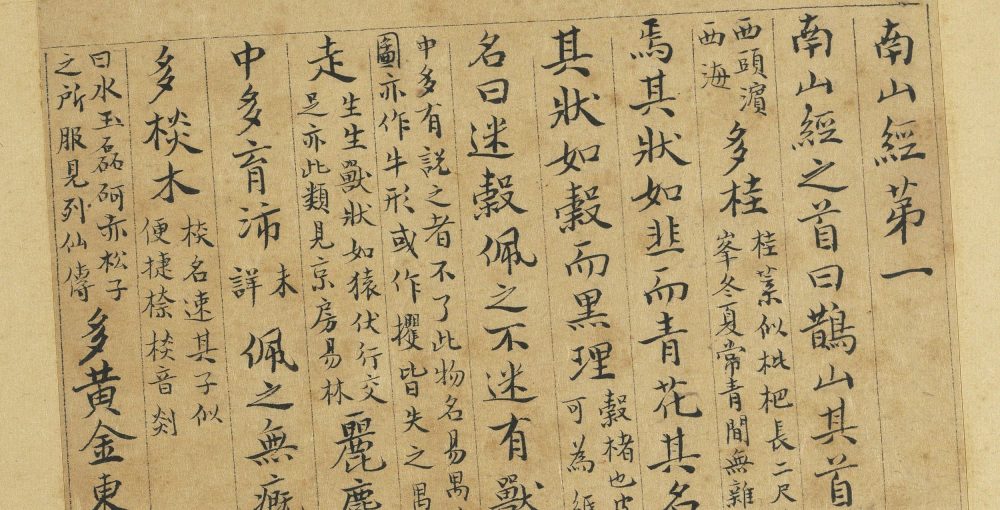 南山經苐一
南山經之首曰鵲山其首
西頭濵
西海
多桂
桂葉似枇杷長二尺
峯冬夏常青間無雜
焉其狀如韭而青花其名
其狀如穀而黑理
穀楮也皮
可為紙
名曰迷穀佩之不迷有獸
中多有説之者不了此物名易禺
圖亦作牛形或作攫皆失之禺
走
生生獸狀如猿伏行交
足亦此類見京房易林
麗
中多育沛
未
詳
佩之無瘕
多棪木
棪名速其子似
便捷㮈棪音剡
曰水玉磊砢亦松子
之所服見列仙傳
多黃金東